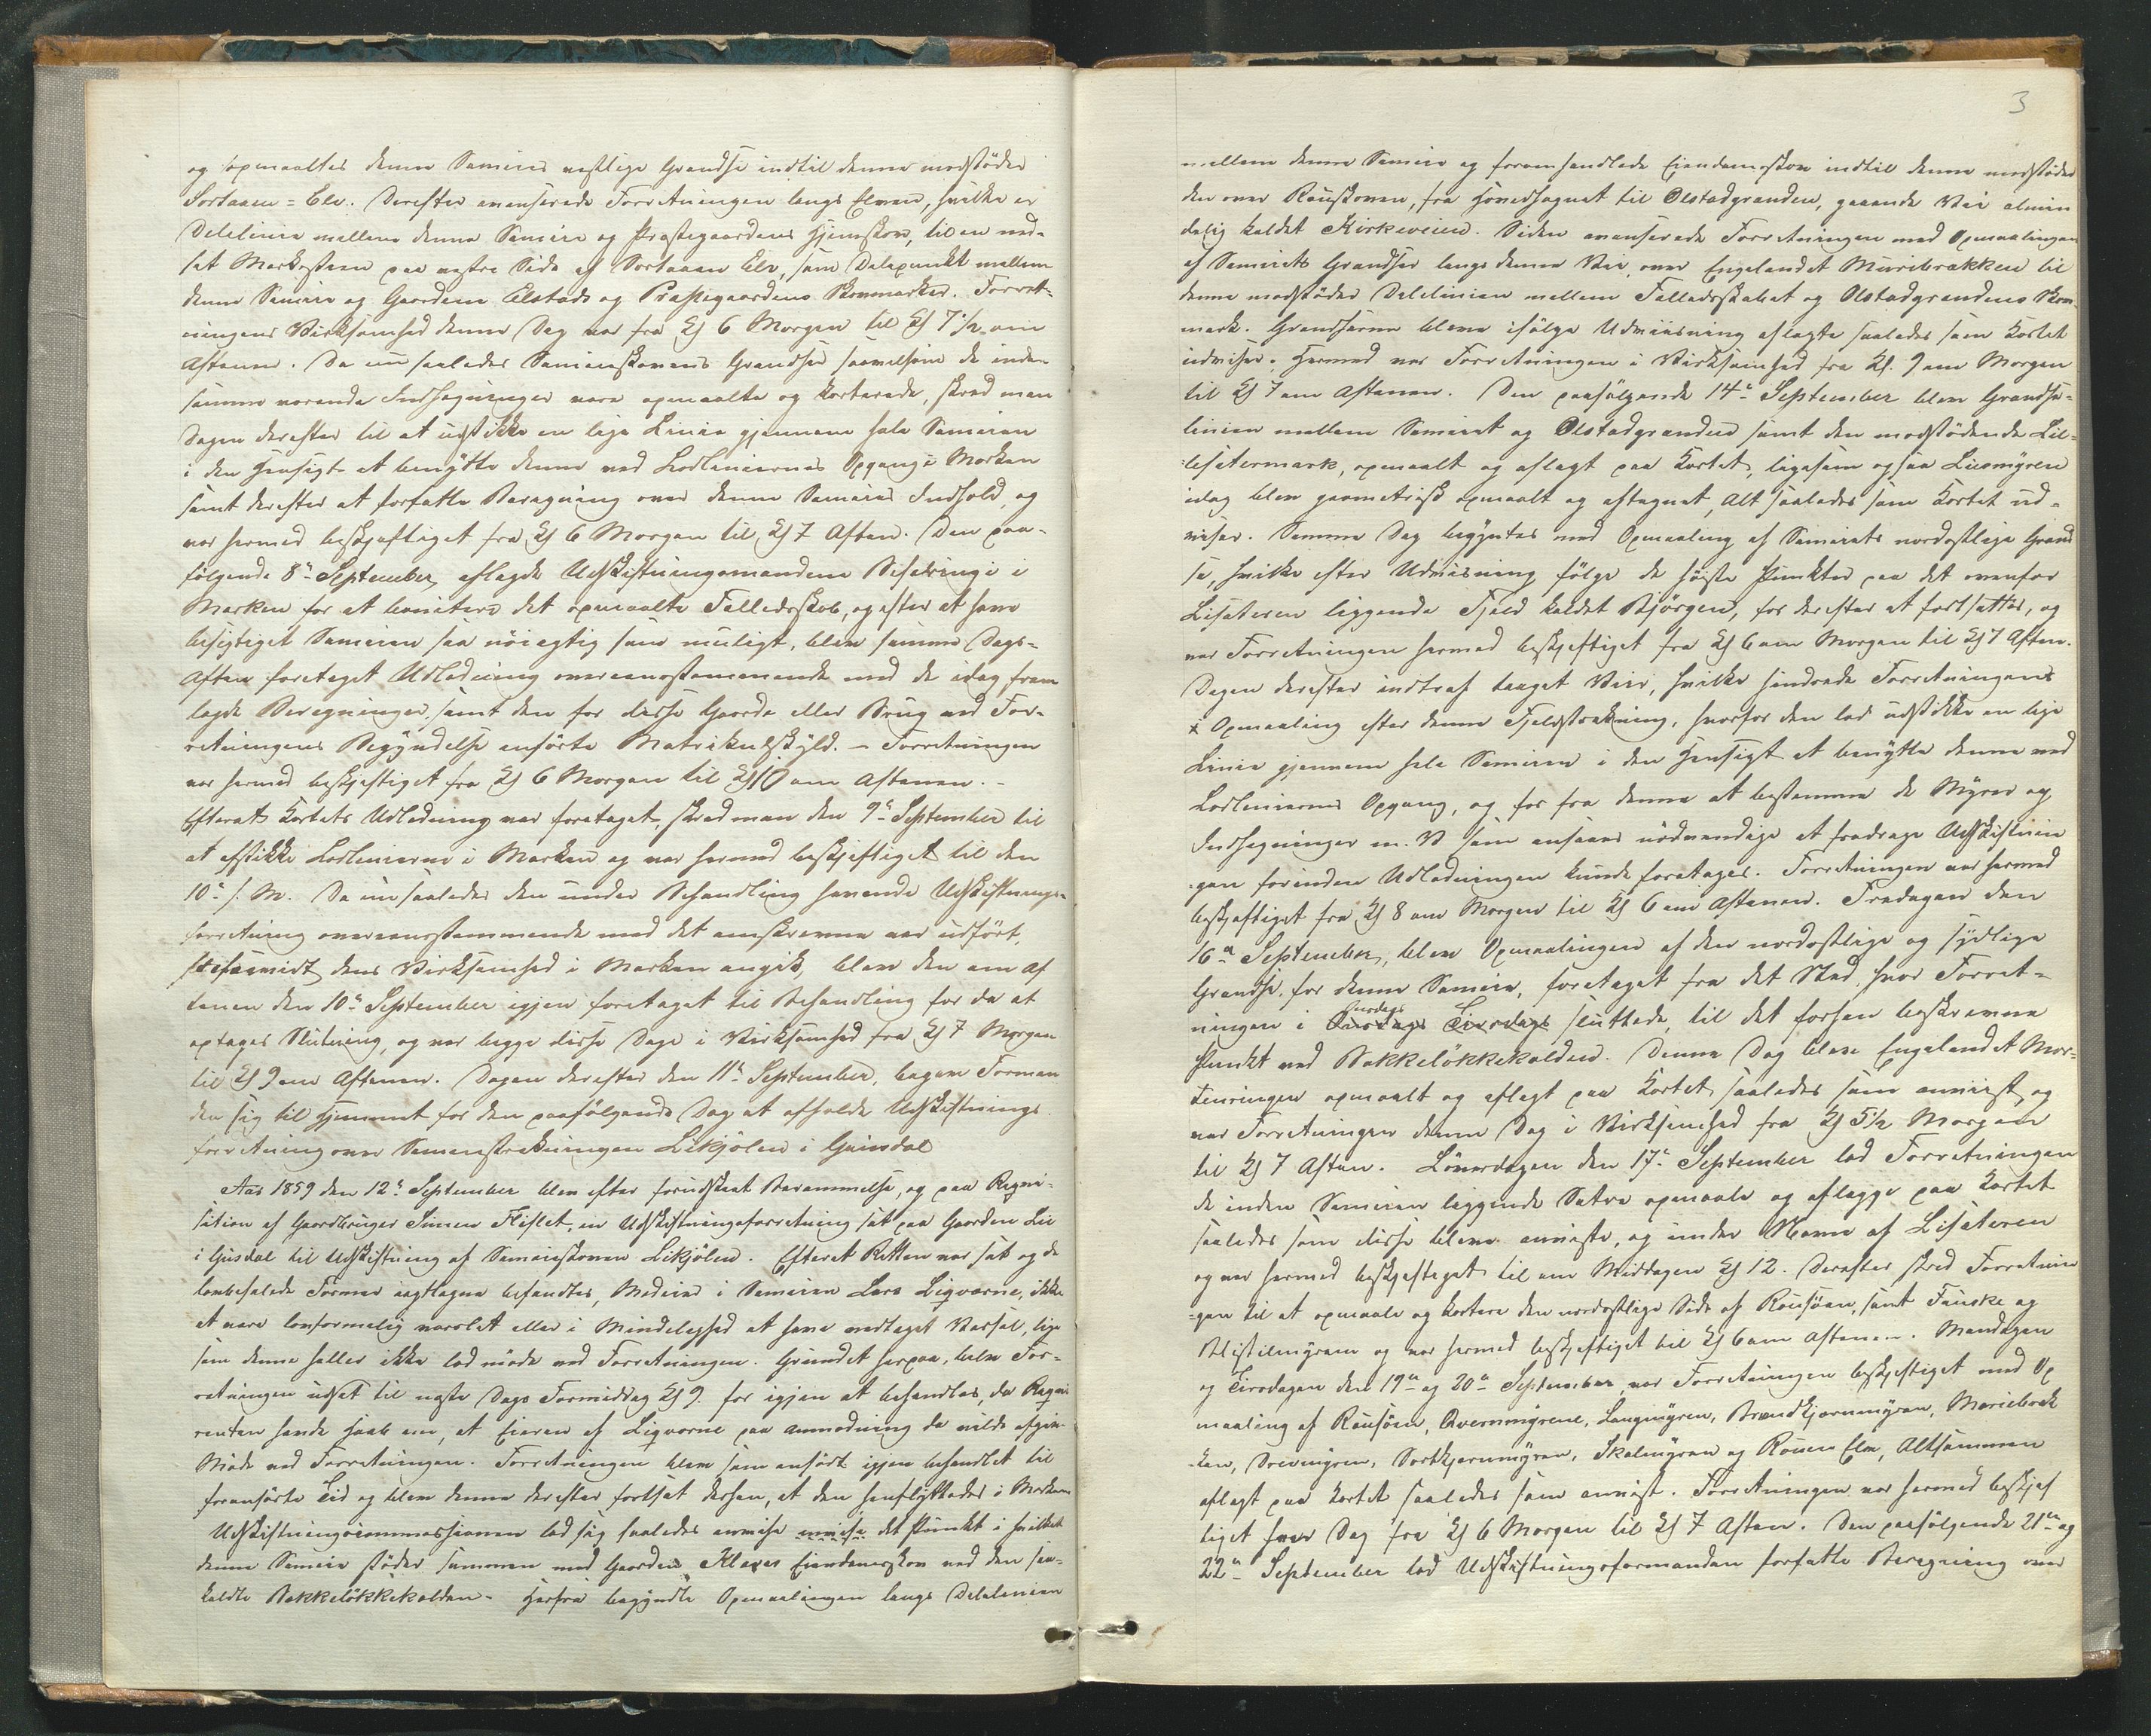 og opmaaltes denne Sameies vestlige Grændse indtil denne modstöder
Sortaaen=Elv. Derefter avanserede Forretningen langs Elven, hvilke er
Delelinie mellem denne Sameie og Præstegaardens Hjemskov, til en ned-
sat Markesteen paa vestre Side af Sortaaen Elv, som Delepunkt mellem
denne Sameie og Gaardene Elstads og Præstegaardens Skovmarker. Forret-
ningens Virksomhed denne Dag var fra Kl 6 Morgen til Kl 7 1/2 om
Aftenen. Da nu saaledes Sameieskovens Grændser saavelsom de inden
samme værende Indhegninger vare opmaalte og karterede, skred man
Dagen derefter til at udstikke en lige Linie gjennem hele Sameien
i den Hensigt at benytte denne ved Lodliniernes Opgang i Marken
samt derefter at forfatte Beregning over denne Sameies Indhold, og
var hermed beskjæftiget fra Kl 6 Morgen til Kl 7 Aften. Den paa-
følgende 8de September aflagde Udskiftningsmændene Befaring i
Marken for at bonitere det opmaalte Fælledsskab, og efter at have
besigtiget Sameien saa nöiagtig som muligt, blev samme Dags-
Aften foretaget Udlodning overeensstemmende med de idag frem
lagde Beregninger, samt den for disse Gaarde eller Brug ved For-
retningens Begyndelse anförte Matrikulskyld. – Forretningen
var hermed beskjeftiget fra Kl 6 Morgen til Kl 10 om Aftenen. –
Efterat Kartets Udlodning var foretaget, skred man den 9de September til
at afstikke Lodlinierne i Marken og var hermed beskjeftiget til den
10de s. M. Da nu saaledes den under Behandling havende Udskiftnings-
forretning overeensstemmende med det anskrevne var udfört,
forsaavidt dens Virksomhed i Marken angik, blev den om Af
tenen den 10de September igjen foretaget til Behandling for da at
optages Slutning, og var begge disse Dage i Virksomhed fra Kl 7 Morgen
til Kl 9 om Aftenen. Dagen derefter den 11te September, begav Forman
den sig til Hjemmet for den paafölgende Dag at afholde Udskiftnings
forretning over Sameiestrækningen Likjölen i Gusdal
Aar 1859 den 12te September blev efter forudskeet Berammelse, og paa Reqvi-
sition af Gaardbruger Simen Fliflet, en Udskiftningsforretning sat paa Gaarden Lie
i Gusdal til Udskiftning af Sameieskoven Likjölen. Efterat Retten var sat og de
lovbefalede Former iagttagne befandtes, Medeier i Sameien Lars Liqvarne, ikke
at være lovformelig varslet eller i Mindelighed at have modtaget Varsel, lige
som denne heller ikke lod möde ved Forretningen. Grundet herpaa, blev For-
retningen udsat til næste Dags Formiddag Kl 9. for igjen at behandles, da Reqvi
renten havde Haab om, at Eieren af Liqvarne paa Anmodning da vilde afgive
Möde ved Forretningen. Forretningen blev som anfört igjen behandlet til
foranförte Tid og blev denne derefter fortsat derhen, at den henflyttedes i Marken
Udskiftningscommissionen lod sig saaledes anvise det Punkt i hvilket
denne Sameie stöder sammen med Gaarden Kleves Eiendomsskov ved den saa-
kaldte Bakkelökkekolden. Herfra begyndte Opmaalingen langs Delelinien
3
mellem denne Sameie og foromhandlede Eiendomsskov indtil denne modstöder
den over Rauskoven, fra Hövedhagnet til Olstadgranden, gaaende Vei almin
delig kaldet Kirkeveien. Siden avanserede Forretningen med Opmaalingen
af Sameiets Grændser langs denne Vei over Engelandet Muribrækken til
denne modstöder Delelinien mellem Fælledsskabet og Olstadgrandens Skov-
mark. Grændserne bleve ifölge Udviisning aflagte saaledes som Kartet
udviser. Hermed var Forretningen i Virksomhed fra Kl. 9 om Morgen
til Kl 7 om Aftenen. Den paafölgende 14de September blev Grændse-
linien mellem Sameiet og Olstadgranden samt den modstödende Lil-
lesetermark, opmaalt og aflagt paa Kartet, ligesom ogsaa Liesmyren
idag blev geometrisk opmaalt og aftegnet, Alt saaledes som Kartet ud-
viser. Samme Dag begyntes med Opmaaling af Sameiets nordostlige Grænd
se, hvilke efter Udvisning fölge de höiste Punkter paa det ovenfor
Lisæteren liggende Fjeld kaldet Bjørgen, for derefter at fortsættes, og
var Forretningen hermed beskjeftiget fra Kl 6 om Morgen til Kl 7 Aften.
Dagen derefter indtraf taaget Veir, hvilke hindrede Forretningens
Opmaaling efter denne Fjeldstrækning, hvorfor den lod udstikke en lige
Linie gjennem hele Sameien i den Hensigt at benytte denne ved
Lodliniernes Opgang, og for fra denne at bestemme de Myrer og
Indhegninger m. V som ansaaes nödvendige at fradrage Udskiftnin
gen forinden Udlodningen kunde foretages. Forretningen var hermed
beskjæftiget fra Kl 8 om Morgen til Kl 6 om Aftenen. Fredagen den
16de September, blev Opmaalingen af den nordostlige og sydlige
Grændse for denne Sameie, foretaget fra det Sted, hvor Forret-
ningen i Onsdags sluttede, til det forhen beskrevne
Punkt ved Bakkelökkekolden. Denne Dag blev Engelandet Mor-
teinringen opmaalt og aflagt paa Kartet saaledes som anviist, og
var Forretningen denne Dag i Virksomhed fra Kl 5 1/2 Morgen
til Kl 7 Aften. Löverdagen den 17de September lod Forretningen
de inden Sameien liggende Sætre opmaale og aflægge paa Kartet
saaledes som disse bleve anviste, og under Navn af Lisæteren
og var hermed beskjeftiget til om Middagen Kl 12. Derefter skred Forretnin
gen til at opmaale og kartere den nordostlige Side af Rausöen, samt Fauske og
Blistilmyrene og var hermed beskjeftiget til Kl 6 om Aftenen. Mandagen
og Tirsdagen den 19de og 20de September var Forretningen beskjeftiget med Op
maaling af Rausöen, Qvernmyrene, Langmyren, Brændkjernmyren, Mariebræk
ken, Drevmyren, Sortkjernmyren, Skalmyren og Rauen Elv, Altsammen
aflagt paa Kartet saaledes som anvist. Forretningen var hermed beskjef
tiget hver Dag fra Kl 6 Morgen til Kl 7 Aften. Den paafölgende 21de og
22de September lod Udskiftningsformanden forfatte Beregning over